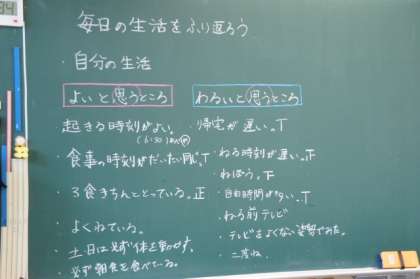 毎日の生活をふり返ろう
・自分の生活
よいと思うところ
わるいと思うところ
起きる時刻がよい。
・食事の時刻がだいたい同じ。T
・3食きちんととっている。正
・よくねている。
・土日は必ず体を動かす。
・必ず朝食を食べている。
・帰宅が遅い。T
・ねる時刻が遅い。正
・ねぼう。下
・自由時間が多い。T
・ねる前テレビ
・テレビをよくない姿勢でみた。
・二度ね。